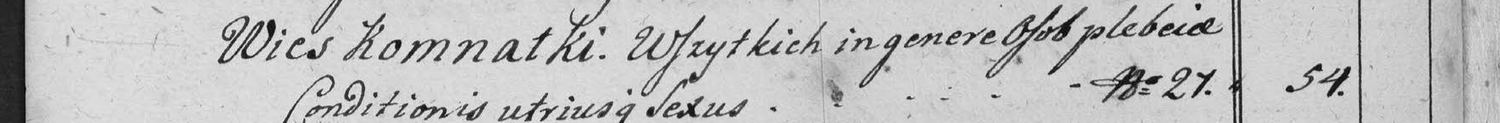 Wies Komnatki. Wszytkich in genere Osob plebeiæ
Conditionis utriusq Sexus . . . . . - No 27. 54.